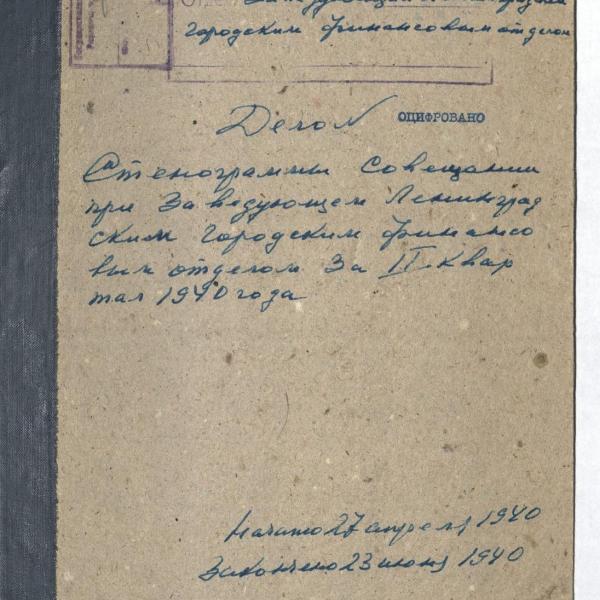 Заведующий Ленинградским
городским финансовым отделом
Дело N ОЦИФРОВАНО
Стенограммы совещании
при Заведующем Ленинград
ским городским финансо
вым отделом за II квар
тал 1940 года
Начато 27 апреля 1940
Закончено 23 июня 1940